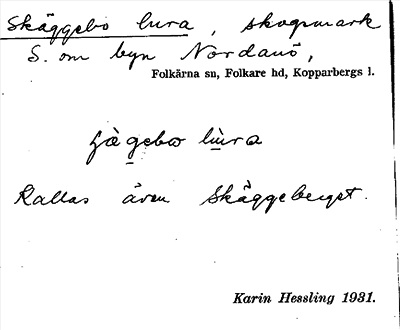 Skäggebo lura, skogsmark
S. om byn Nordanö,
Folkärna sn, Folkare hd, Kopparbergs l.
lura
Kallas även Skäggeberget.
Karin Hessling 1931.